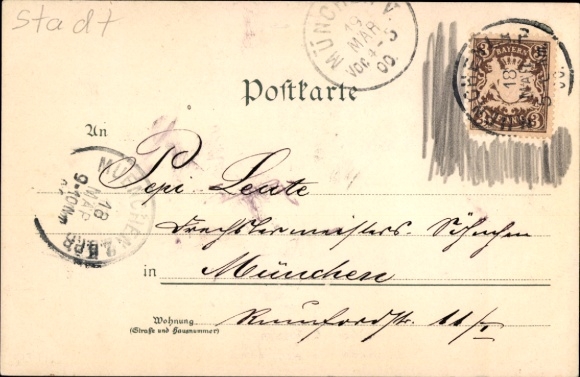 Stadt
MÜNCHEN V.
19
MAR
VOR 4-5
00.
BAYERN
3 3
PFENNIG
18
MAR
Postkarte
An
MUENCHEN
18
MAR
9-10 Nm
Pepi Leute
Drechslermeisters. Söhnchen
in München
Wohnung Rumfordstr. 11/I
(Straße und Hausnummer)